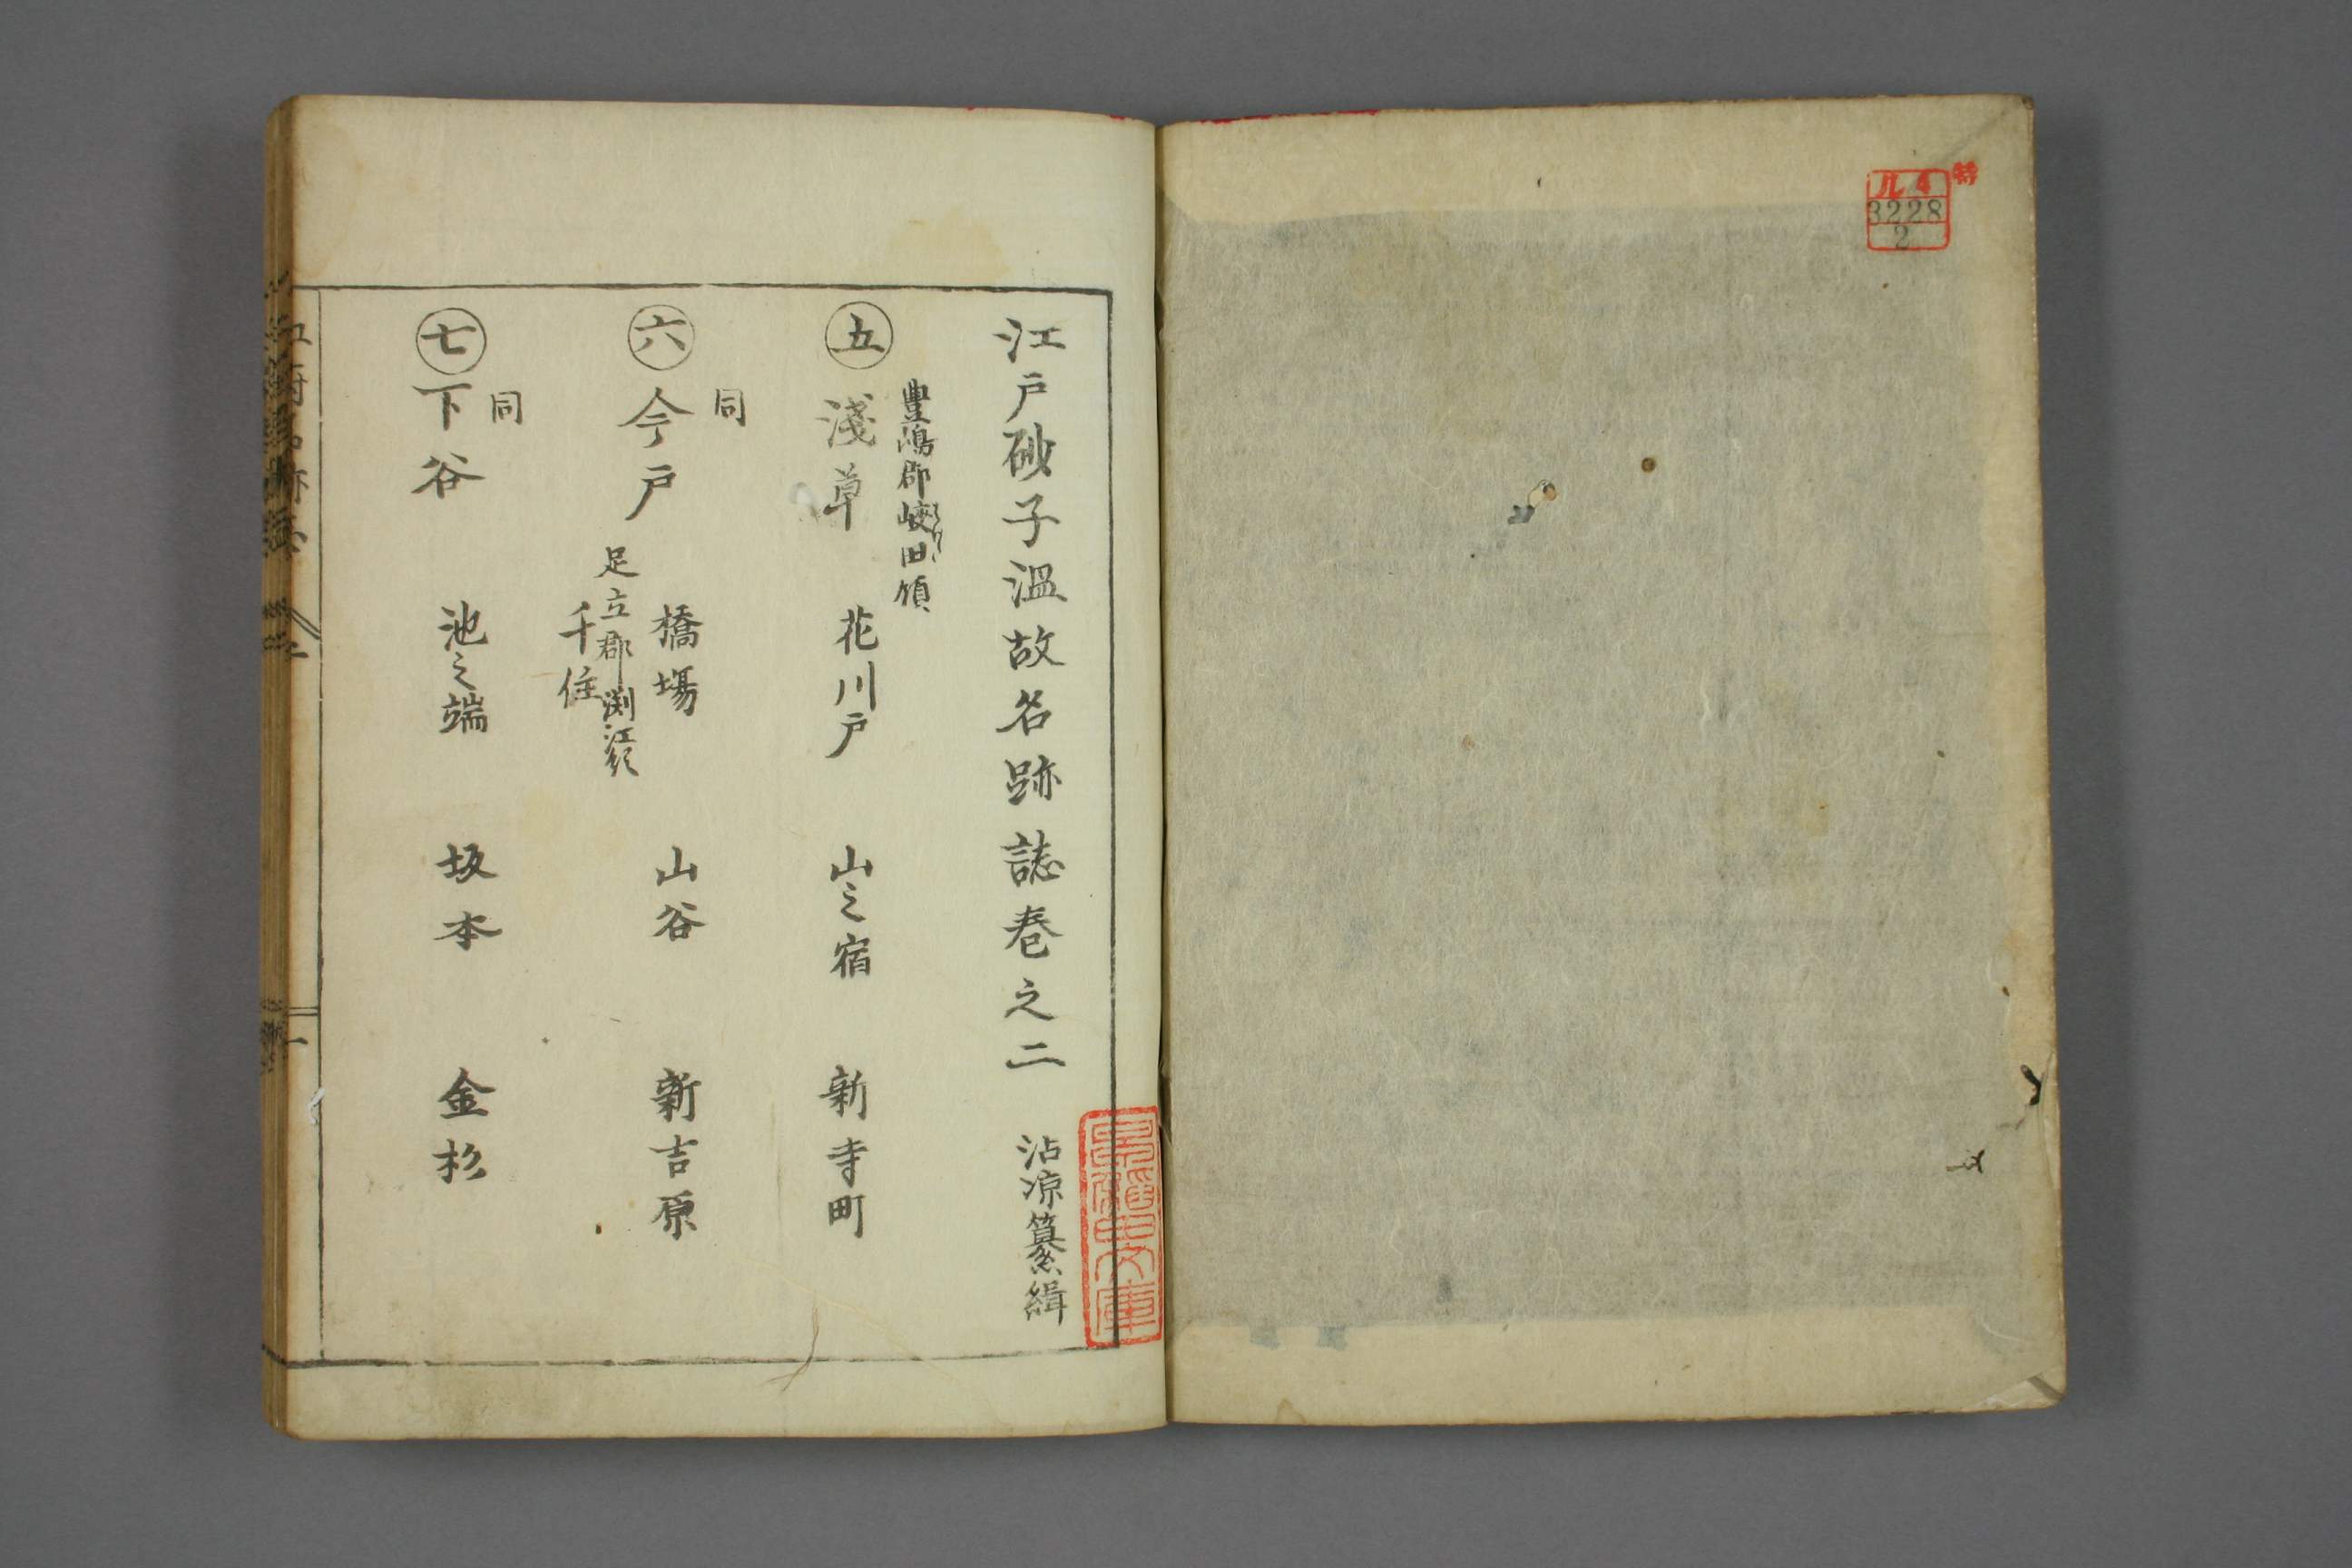 特
ル4
3228
2
江戸砂子温故名跡誌巻之二 沾凉纂緝
豊嶋郡峽田領
五 淺草 花川戸 山之宿 新寺町
同
六 今戸 橋場 山谷 新吉原
足立郡渕江領
千住
同
七 下谷 池之端 坂本 金杉